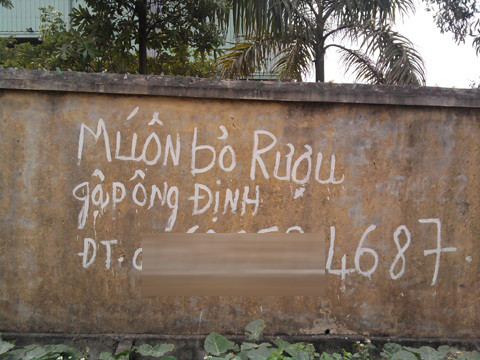 MUÔN bỏ Rượu
gặp ông ĐỊNH
ĐT. 4687.